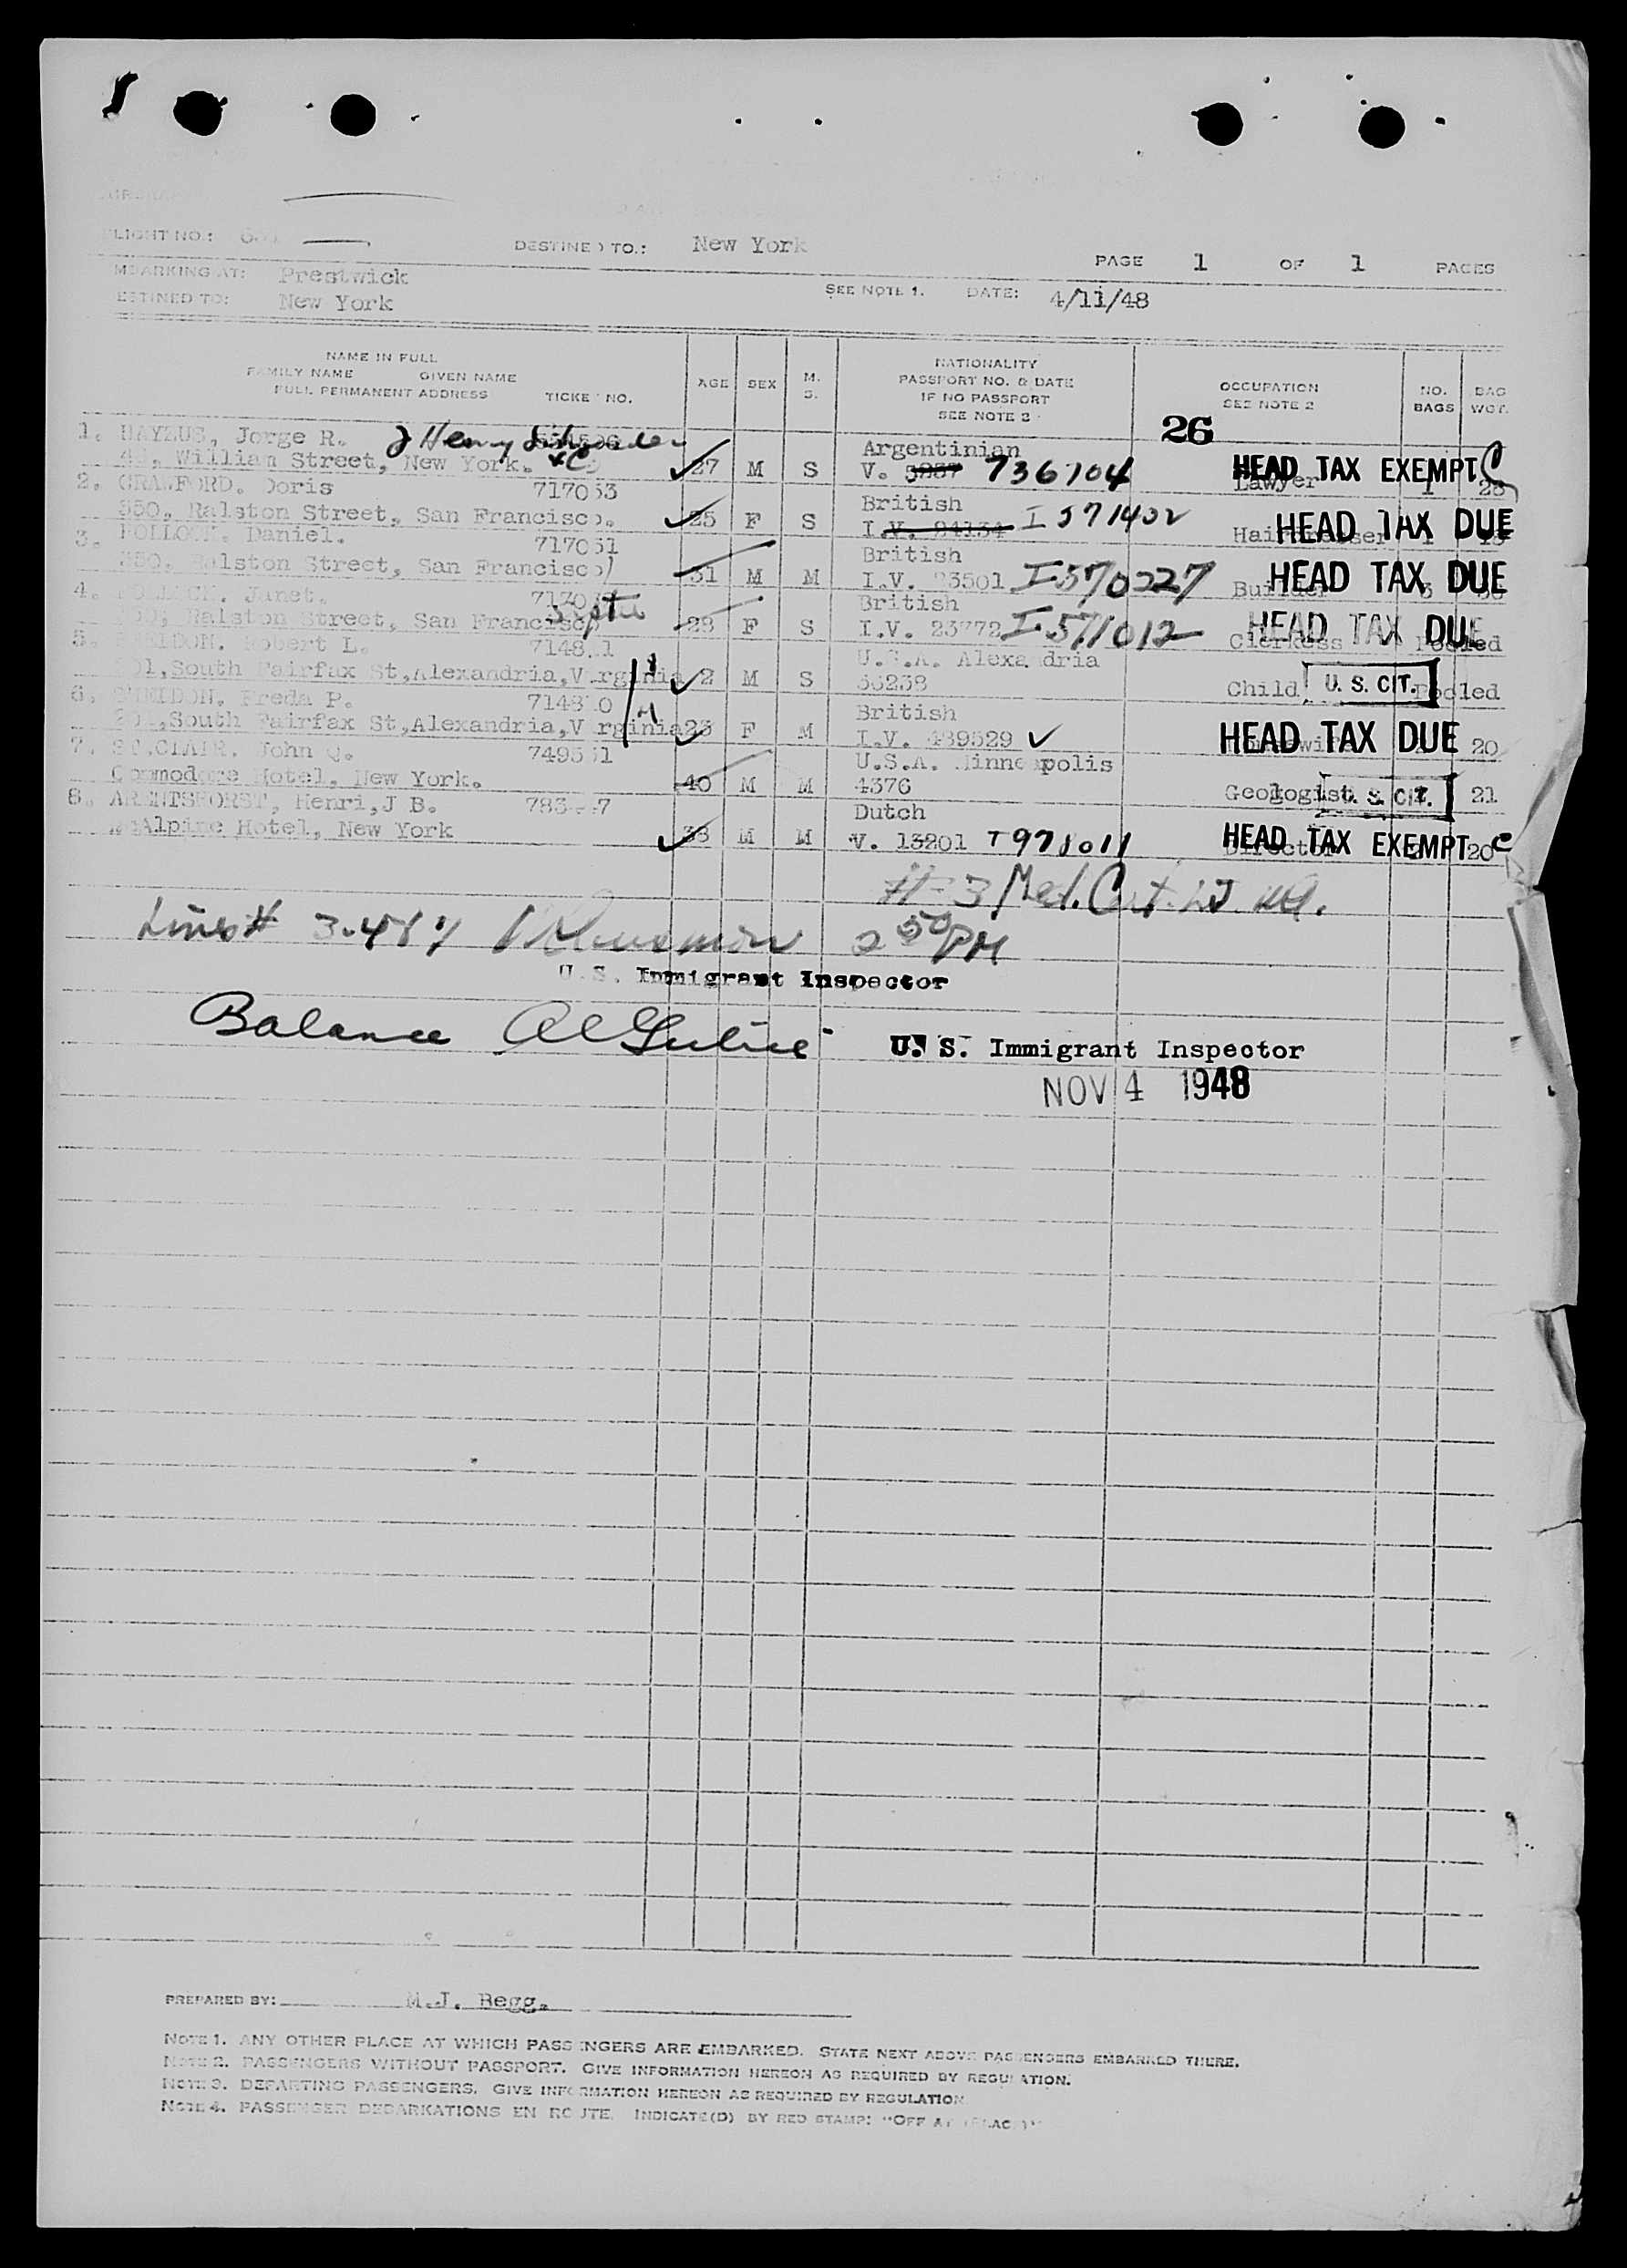 FLIGHT NO.: DESTINED TO.: New York
PAGE 1 OF 1 PAGES
EMBARKING AT: Prestwick
DESTINED TO: New York SEE NOTE 1. DATE: 4/11/48
NAME IN FULL
FAMILY NAME GIVEN NAME
FULL PERMANENT ADDRESS TICKET NO.
AGE SEX M. S.
NATIONALITY
PASSPORT NO. & DATE
IF NO PASSPORT
SEE NOTE 3
OCCUPATION
SEE NOTE 2
NO. BAGS
BAG WGT.
26
1. Jorge R. Henry Argentinian
William Street, New York. 27 M S V. 5237 736704 Lawyer HEAD TAX EXEMPT C 1
2. CRAWFORD. Doris 717053 British
350, Ralston Street, San Francisco. 25 F S I.V. 24134 I 571402 Hairdresser HEAD TAX DUE 1
3. POLLOCK. Daniel. 717051 British
350, Ralston Street, San Francisco 31 M M I.V. 23501 I 570227 Builder HEAD TAX DUE
4. POLLOCK. Janet. British
Ralston Street, San Francisco 28 F S I.V. 23772 I 571012 Clerkess HEAD TAX DUE Pooled
5. Robert L. U.S.A. Alexandria
201, South Fairfax St, Alexandria, Virginia 2 M S 55238 Child U. S. CIT. Pooled
6. Freda P. British
201, South Fairfax St, Alexandria, Virginia 23 F M I.V. 489529 HEAD TAX DUE 20
7. ST.CLAIR. John Q. 749551 U.S.A. Minneapolis
Commodore Hotel, New York. 40 M M 4376 Geologist U. S. CIT. 21
8. ARENTSHORST, Henri, J B. Dutch
McAlpine Hotel, New York 38 M M V. 13201 T 978011 Director HEAD TAX EXEMPT C 20
#3 Med. Cert.
Lines # 3-4 & 7 2 50 PM
U. S. Immigrant Inspector
Balance
U. S. Immigrant Inspector
NOV 4 1948
PREPARED BY: M.J. Begg.
NOTE 1. ANY OTHER PLACE AT WHICH PASSENGERS ARE EMBARKED. STATE NEXT ABOVE PASSENGERS EMBARKED THERE.
NOTE 2. PASSENGERS WITHOUT PASSPORT. GIVE INFORMATION HEREON AS REQUIRED BY REGULATION.
NOTE 3. DEPARTING PASSENGERS. GIVE INFORMATION HEREON AS REQUIRED BY REGULATION
NOTE 4. PASSENGER DEBARKATIONS EN ROUTE. INDICATE(D) BY RED STAMP: "OFF AT (PLACE)"